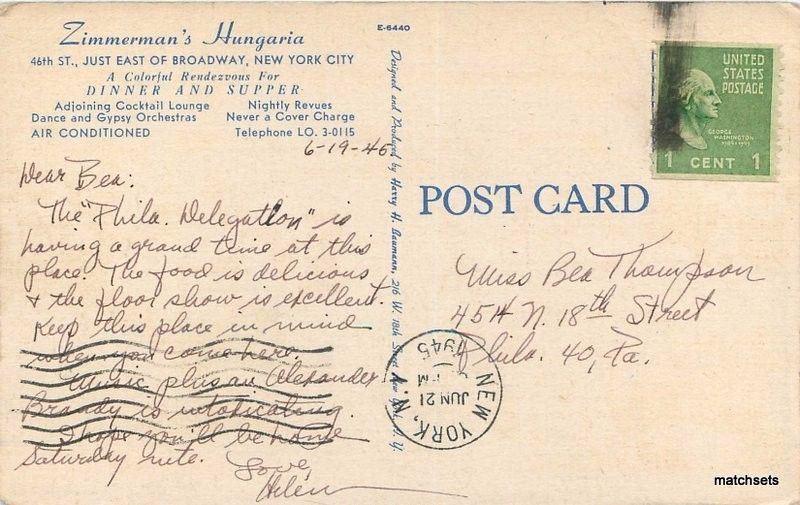 Zimmerman's Hungaria
46th ST., JUST EAST OF BROADWAY, NEW YORK CITY
A Colorful Rendezvous For
DINNER AND SUPPER
Adjoining Cocktail Lounge Nightly Revues
Dance and Gypsy Orchestras Never a Cover Charge
AIR CONDITIONED Telephone LO. 3-0115
6-19-45.
Dear Bea:
The "Phila. Delegation" is
having a grand time at this
place. The food is delicious
& the floor show is excellent.
Keep this place in mind
when you come here.
Music plus an Alexander
Brandy is intoxicating.
I hope you'll be home
Saturday nite.
Love,
Helen
E-6440
Designed and Produced by Harry H. Baumann, 216 W. 18th Street New York, N. Y.
POST CARD
UNITED
STATES
POSTAGE
GEORGE
WASHINGTON
1789-1797
1 CENT 1
Miss Bea Thompson
4514 N. 18th Street
Phila. 40, Pa.
NEW YORK, N.Y.
JUN 21
PM
1945
matchsets